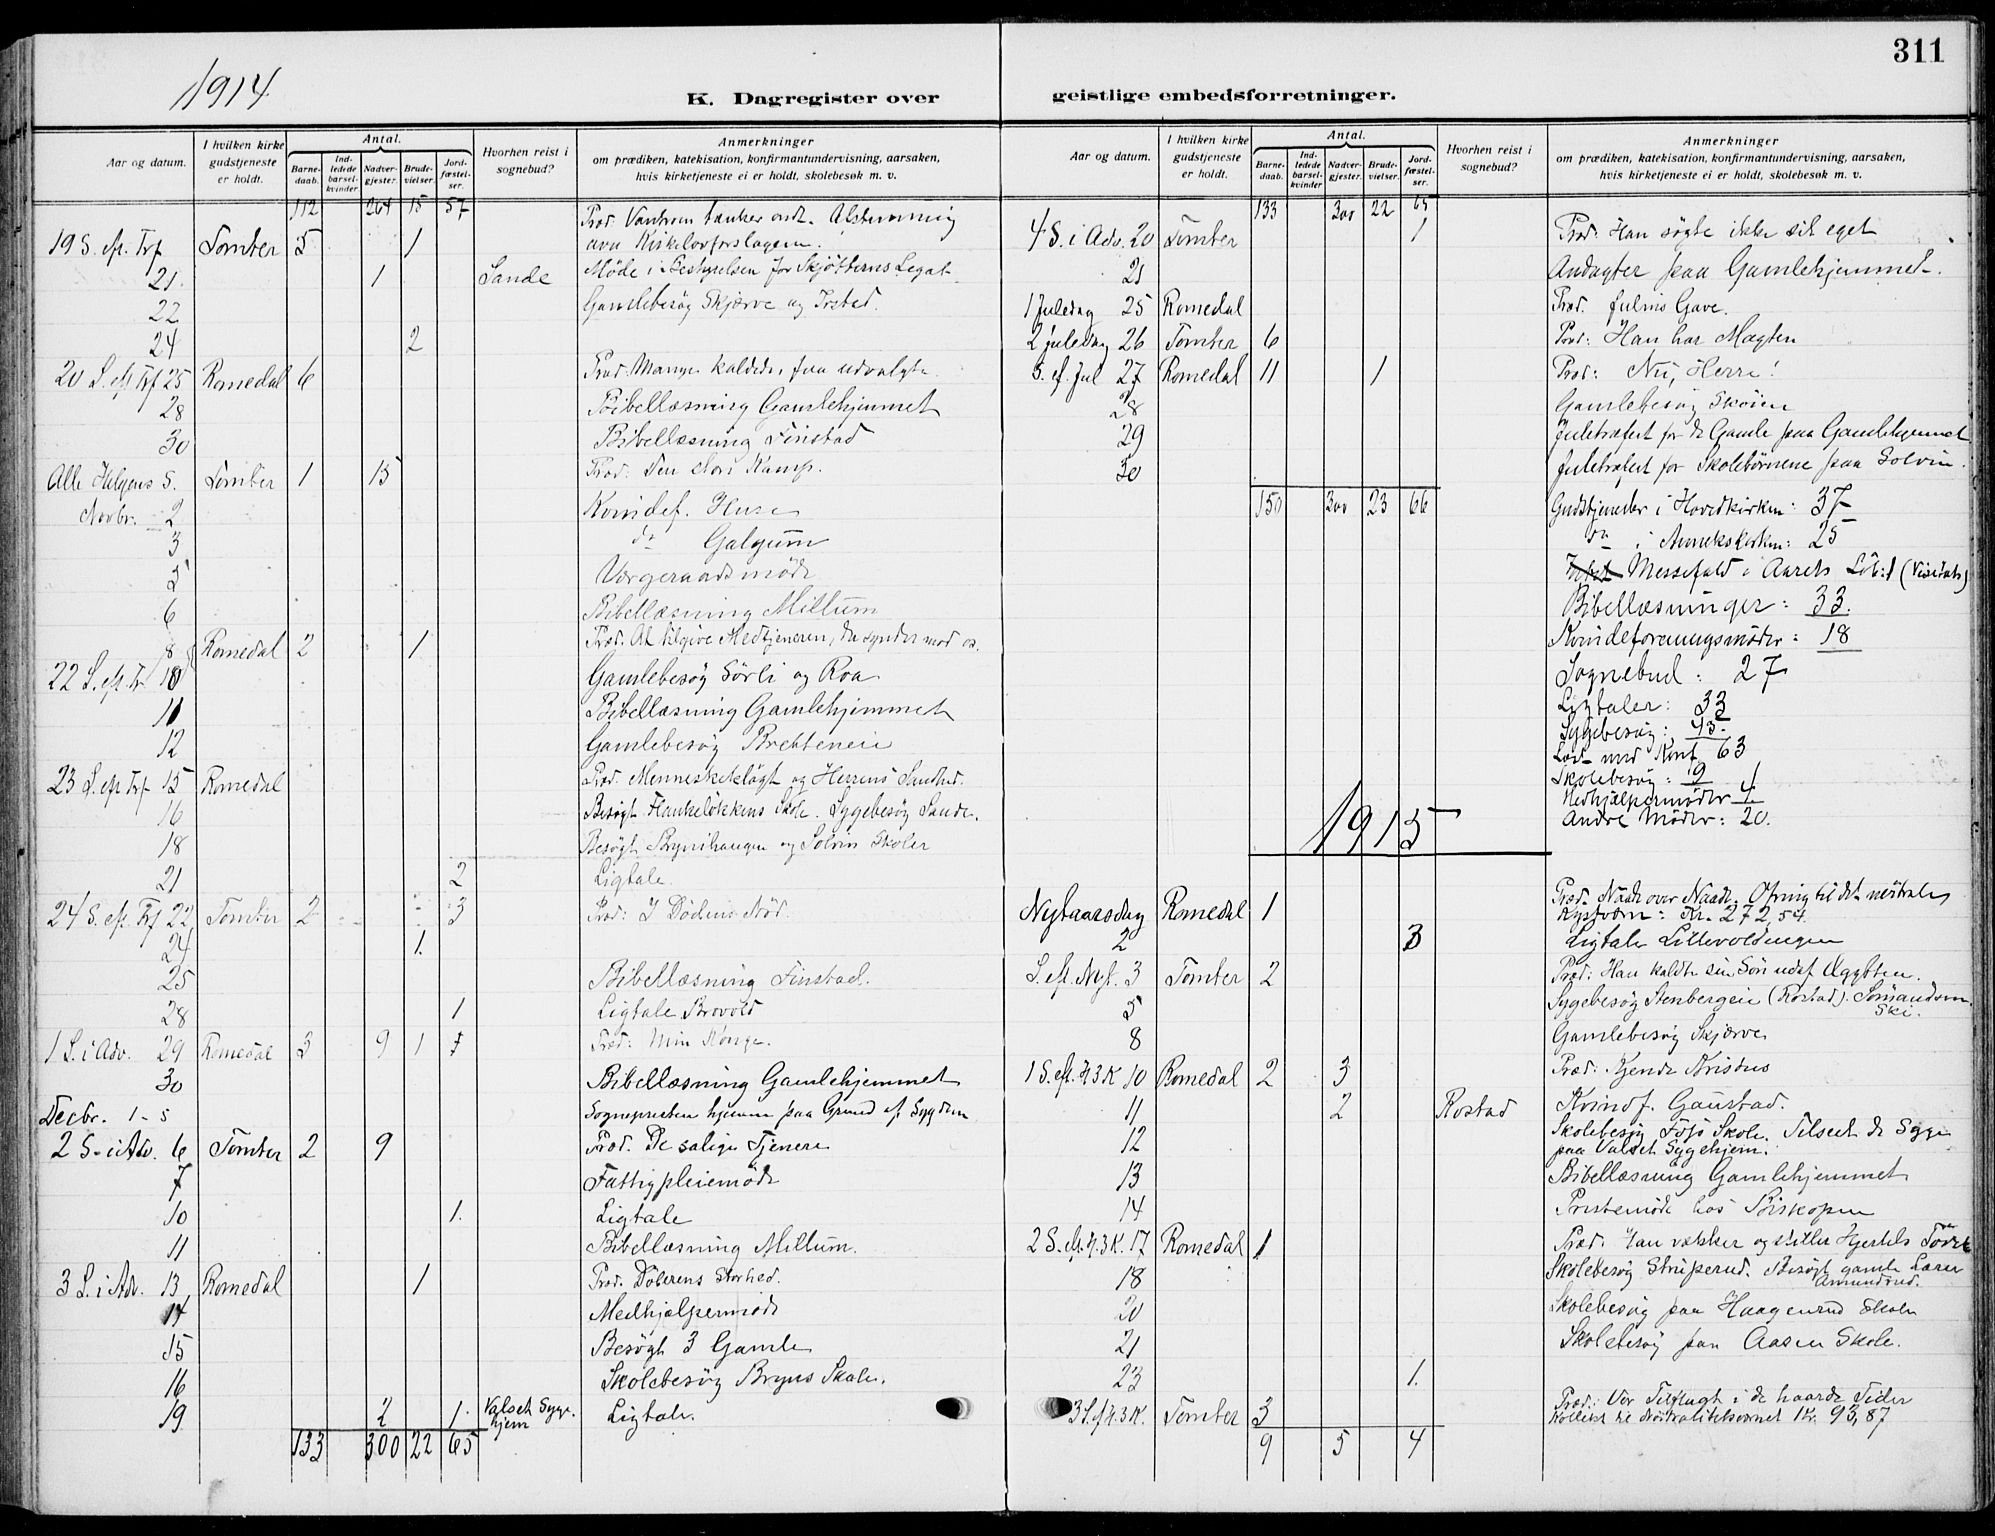 311
1914
K. Dagregister over
geistlige embedsforretninger.
Aar og datum. I hvilken kirke gudstjeneste er holdt. Antal. Barne-daab. Ind-ledede barsel-kvinder Nadver-gjester. Brude-vielser. Jord-fæstel-ser. Hvorhen reist i sognebud? Anmerkninger om prædiken, katekisation, konfirmantundervisning, aarsaken, hvis kirketjeneste ei er holdt, skolebesøk m. v.
112 264 15 57
19 S. ef. Trf Tomter 5 1 Præd. Vantroen tænker ondt. Afstemning
ova Kirkelovforslagene.
21. 1 Sande Møde i Bestyrelsen for Skjøtterns Legat
22 Gamlebesøg Skjærve og
24 2
20 S. ef Trf 25 Romedal 6 Præd. Mange kaldede, faa udvalgte
28 Bibellæsning Gamlehjemmet
30 Bibellæsning Finstad
Alle Helgens S. Tomter 1 15 Præd: Den store Kamp.
Novbr. 2 Kvindef. Huse
3 do Galgum
5 Værgeraadsmøde
6 Bibellæsning Mellum
8 Romedal 2 1 Præd. At tilgive Medtjeneren, der synder mod os.
22 S. ef. Tr 10 Gamlebesøg Sørli og Roa
11 Bibellæsning Gamlehjemmet
12 Gamlebesøg Brekkeneie
23 S. ef Trf 15 Romedal Præd. Menneskekløgt og Herrens Sandhed.
16 Besøgt Flankeløkkens Skole. Sygebesøg Sande.
18 Besøgt Brynihaugen og Solvin Skoler
21 2 Ligtale.
24 S. ef. Trf 22 Tomter 2 3 Præd: I Dødens Nød.
24 1.
25 Bibellæsning Finstad.
28 1 Ligtale Brovold
1 S. i Adv. 29 Romedal 3 9 1 1 Præd: Min Konge.
30 Bibellæsning Gamlehjemmet
Decbr. 1-5 Sognepresten hjemme paa Grund af Sygdom
2 S. i Adv. 6 Tomter 2 9 Præd. De salige Tjenere
7 Fattigpleiemøde
10 1. Ligtale
11 Bibellæsning Mellum.
3 S. i Adv. 13 Romedal 1 Præd. Døberens Storhed.
14 Medhjælpermøde
15 Besøgt 3 Gamle
16 Skolebesøg Bryns Skole.
19 2 1. Valset Syge-hjem Ligtale.
133 300 22 65
Aar og datum. I hvilken kirke gudstjeneste er holdt. Antal. Barne-daab. Ind-ledede barsel-kvinder Nadver-gjester. Brude-vielser. Jord-fæstel-ser. Hvorhen reist i sognebud? Anmerkninger om prædiken, katekisation, konfirmantundervisning, aarsaken, hvis kirketjeneste ei er holdt, skolebesøk m. v.
133 300 22 65
4 S. i Adv. 20 Tomter 1 Præd: Han søgte ikke sit eget
21 Andagter paa Gamlehjemmet.
1 Juledag 25 Romedal Præd. Julens Gave.
2 Juledag 26 Tomter 6 Præd: Han har Magten
S. ef. Jul 27 Romedal 11 1 Præd: Nu, Herre!
28 Gamlebesøg Skøien
29 Juletræfest for de Gamle paa Gamlehjemmet
30 Juletræfest for Skolebørnene paa Solvin.
150 300 23 66 Gudstjenester i Hovedkirken: 37
do i Annekskirken: 25
Messefald i Aarets Løb: 1 (Visitats)
Bibellæsninger: 33.
Kvindeforeningsmøder: 18
Sognebud: 27
Ligtaler: 33
Sygebesøg: 43
Læst med Konf. 63
Skolebesøg: 9
Medhjælpermøder 4
Andre Møder: 20.
1915
Nytaarsdag Romedal 1 Præd. Naade over Naade. Ofring til det nøitrale
Kystværn: Kr. 272,54
2 3 Ligtale Lillevoldengen
S. ef. Nyt. 3 Tomter 2 Præd: Han kaldte sin Søn ud af Ægypten.
5 Sygebesøg Stenbergeie (Rostad).
Ski.
8 Gamlebesøg Skjærve
1 S. ef. H3K 10 Romedal 2 3 Præd: Kjende Kristus
11 2 Rostad Kvindf. Gaustad.
12 Skolebesøg Fosø Skole. Tilseet de Syge
paa Valset Sygehjem.
13 Bibellæsning Gamlehjemmet
14 Prestemøde hos Biskopen
2 S. ef. H.3K. 17 Romedal 1 Præd. Han vækker og stiller Hjertets Tørst
18 Skolebesøg Struperud. Besøgt gamle Lærer
Amundrud.
20 Skolebesøg paa Haagenrud Skole
21 Skolebesøg paa Aasen Skole.
23 1.
3 S. ef H.3K. Tomter 3 Præd: Vor Tilflugt i de haarde Tider
Kollekt til Nøitralitetsværnet Kr. 93,87
9 5 4